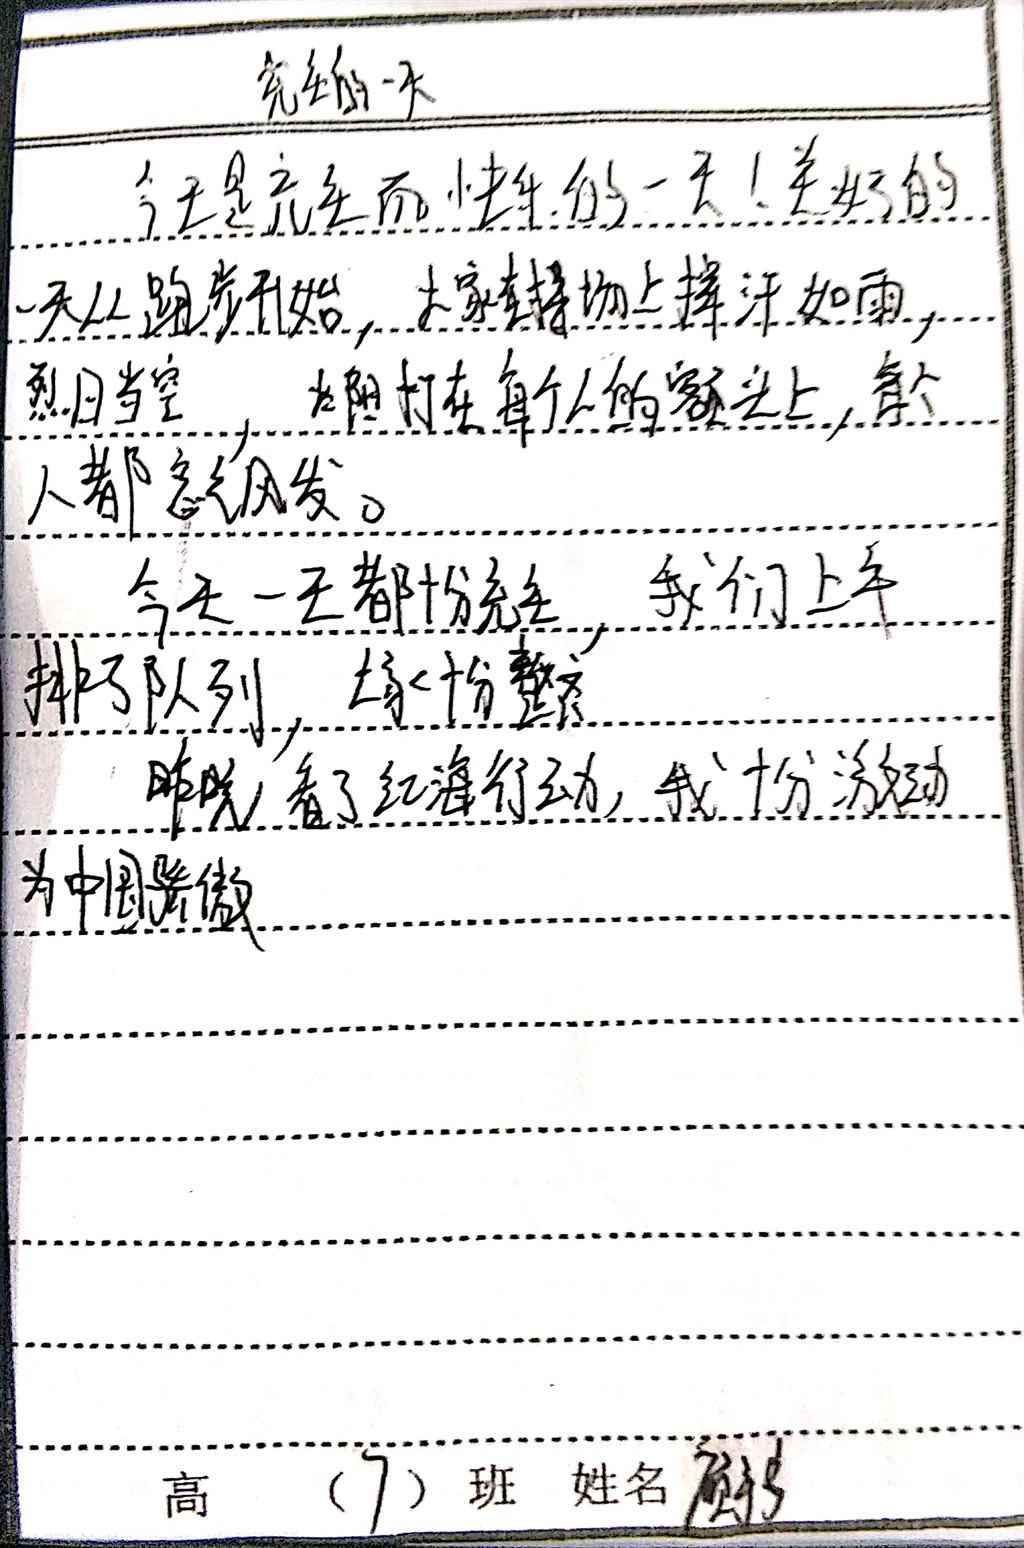 充实的一天
今天是充实而快乐的一天！美好的
一天从跑步开始，大家在操场上挥汗如雨，
烈日当空，太阳打在每个人的额头上，每个
人都意气风发。
今天一天都十分充实，我们上午
排了队列，大家十分整齐
昨晚看了红海行动，我十分激动
为中国骄傲
高（7）班 姓名